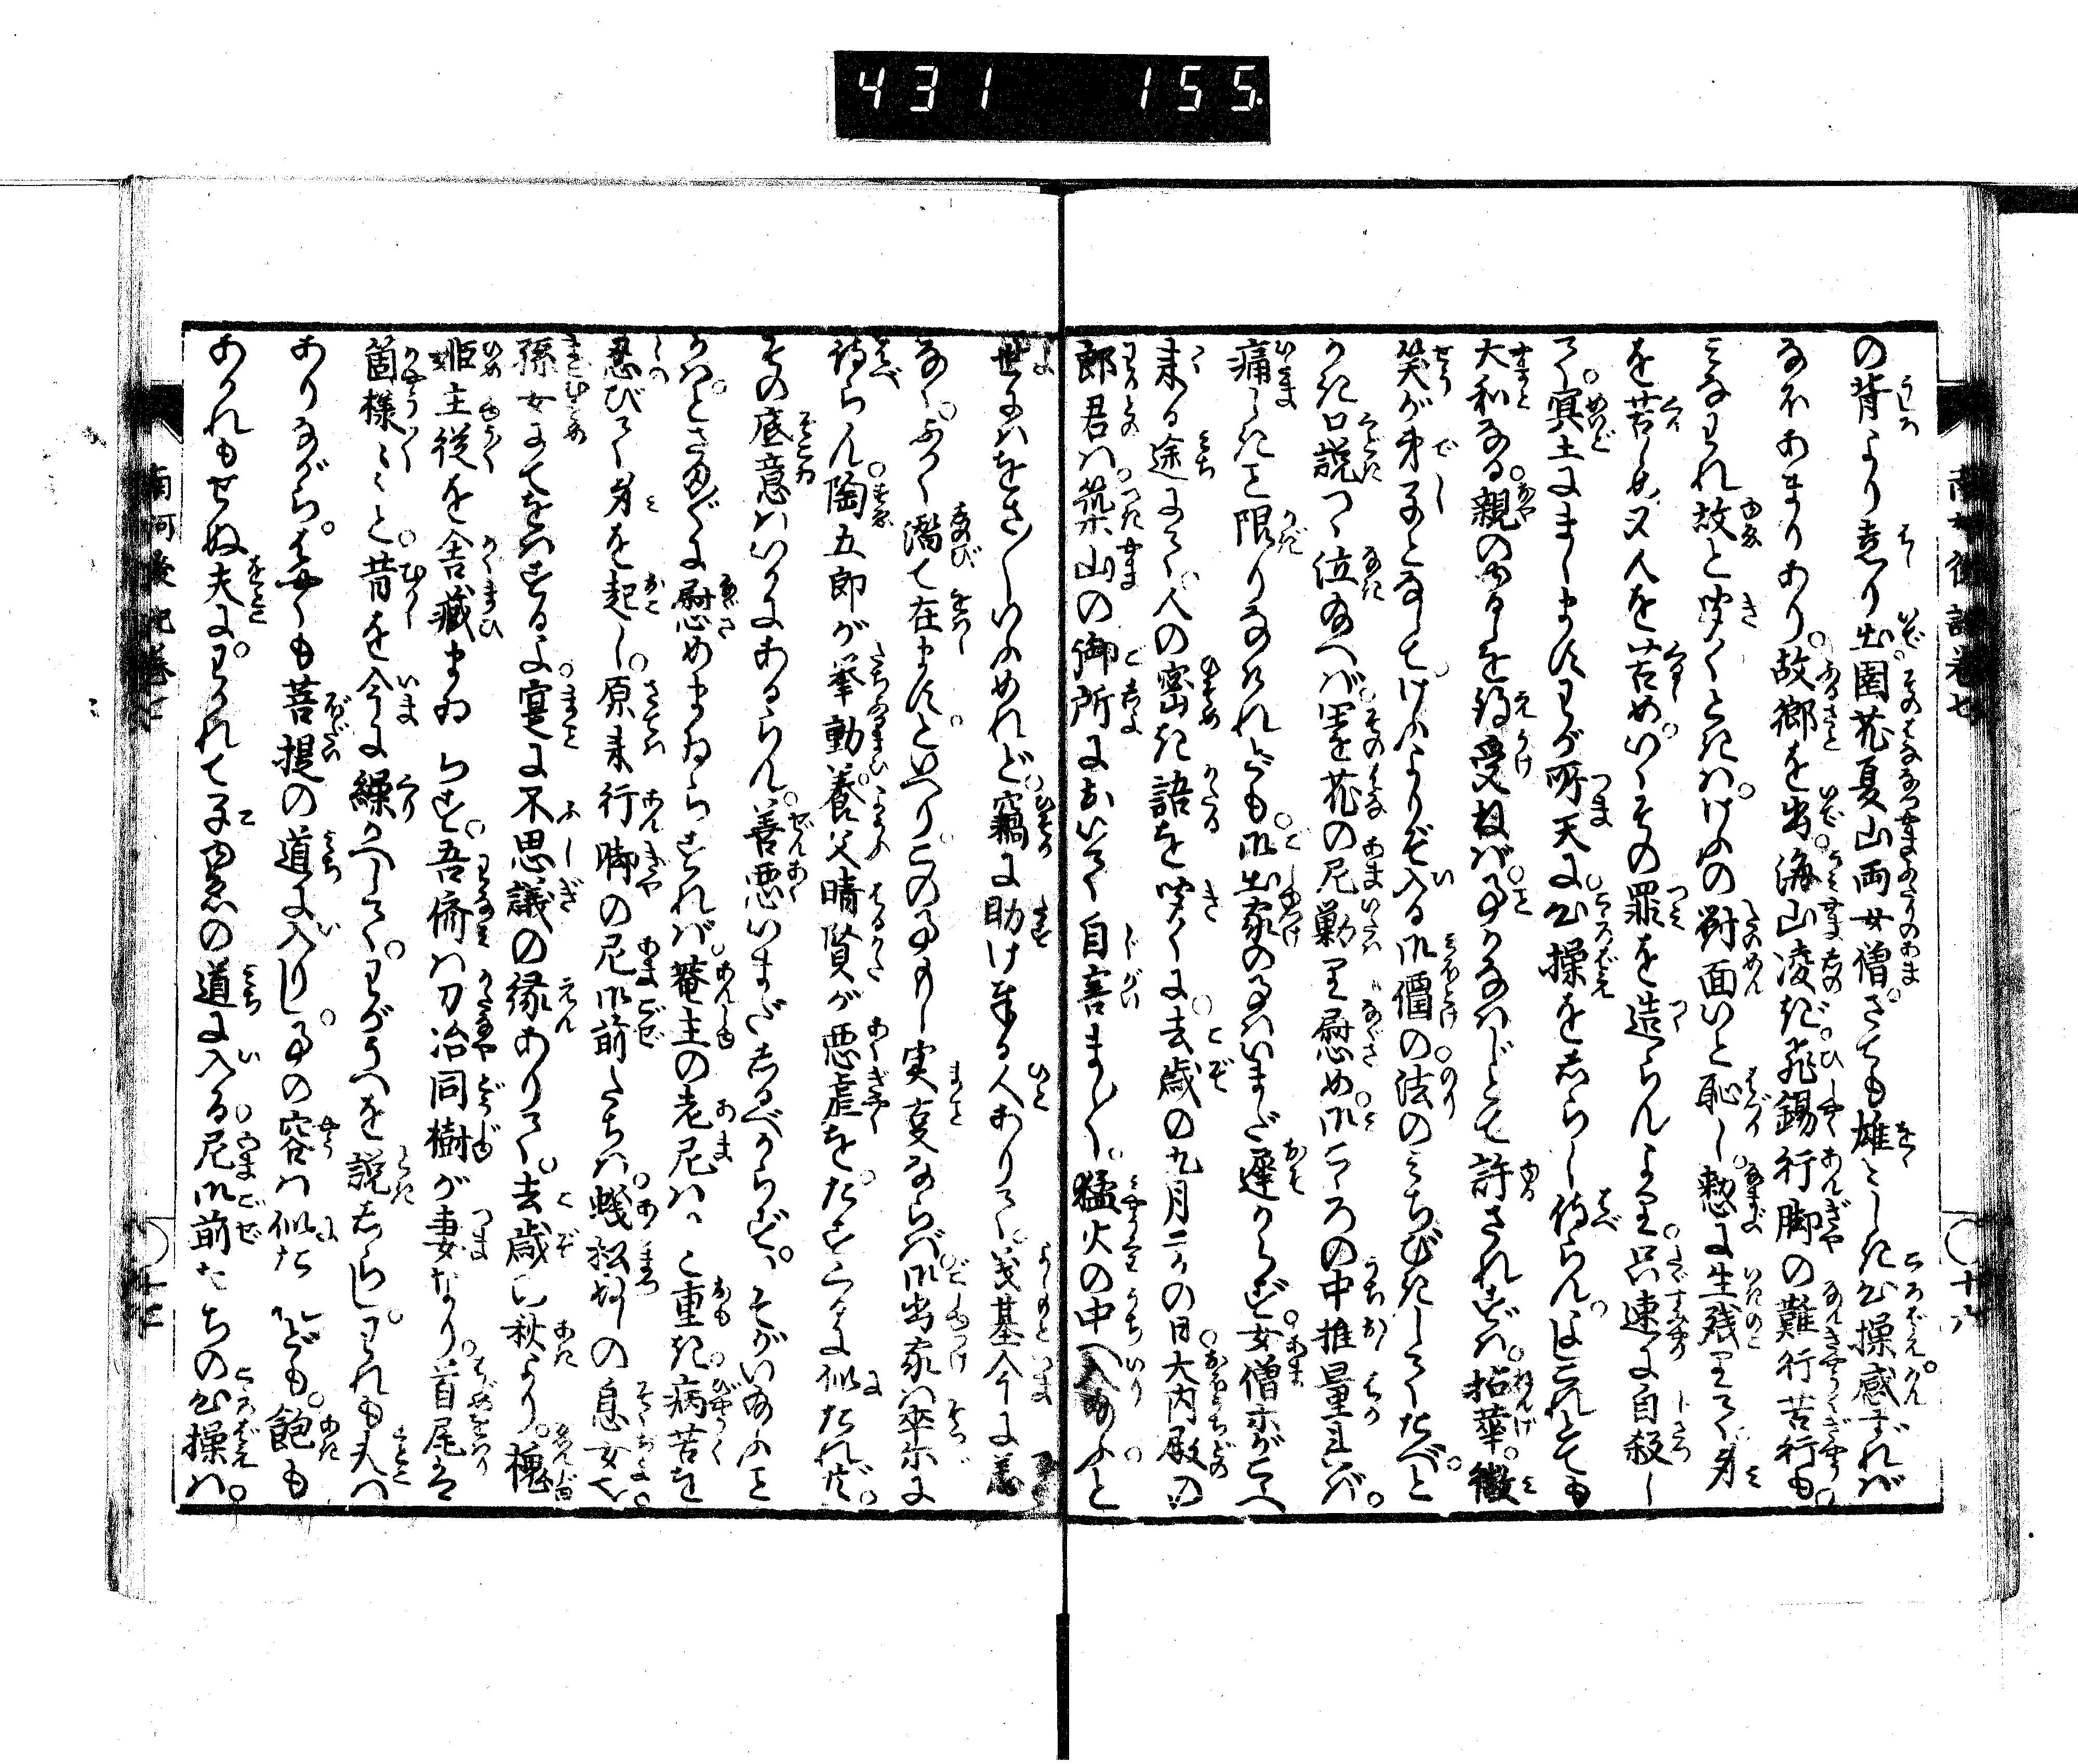 431 155.
の背より走り出。園花夏山両女僧。さても雄々しき心操。感ずれば
なほあまりあり。故郷を出。海山凌ぎ。飛錫行脚の難行苦行も。
みなわれ故と聞くときは。けふの対面いと恥し。憖に生残りて。身
を苦しめ。又人を苦め。いくその罪を造らんより。只速に自殺し
て。冥土にましますわが所天に。心操をしらし侍らん。よこれとても
大和なる。親のゆるしを得受ねば。事かなはじとて許されずは。拈華。微
笑が弟子となして。けふよりぞ入る御僧の法のみちびきしてたべと。
かき口説つゝ位給へば。園花の尼勦り慰め。御こゝろの中推量れば。
痛しきこと限りなけれども。御出家の事はいまだ遅からず。女僧等がこゝへ
来る途にて。人の密き語を聞くに。去歳の九月二かの日。大内殿の
郎君は。築山の御所において自害まし〳〵。猛火の中へ入給ふと
世にはをさ〳〵いふめれど。竊に助け奉る人ありて。義基今に恙
なく。ふかく濡て在ますといへり。この事もし実事ならば。御出家は率尓に
侍らん。陶五郎が挙動。養父晴賢が悪虐を。たすくるに似たれど。
その底意はいかにあるらん。善悪いまだしるべからず。そがいふこと
かは。とさま〴〵に慰めまゐらすれば。菴主の老尼は。と重き。病苦を
忍びて身を起し。原来行脚の尼御前たちは。蜑松村の息女也。
孫女にてをはするよ。寔に不思議の縁ありて。去歳の秋より。槐
姫主従を舎蔵まゐらす。吾儕は刀冶同樹が妻なり。首尾は
箇様々々と。昔を今に繰かへして。わがうへを説しらし。われも夫は
ありながら。はやくも菩提の道に入りし。事の容は似たれども。飽も
あかれもせぬ夫に。わかれて子ゆゑの道に入る。尼御前たちの心操は。
南河後記巻七